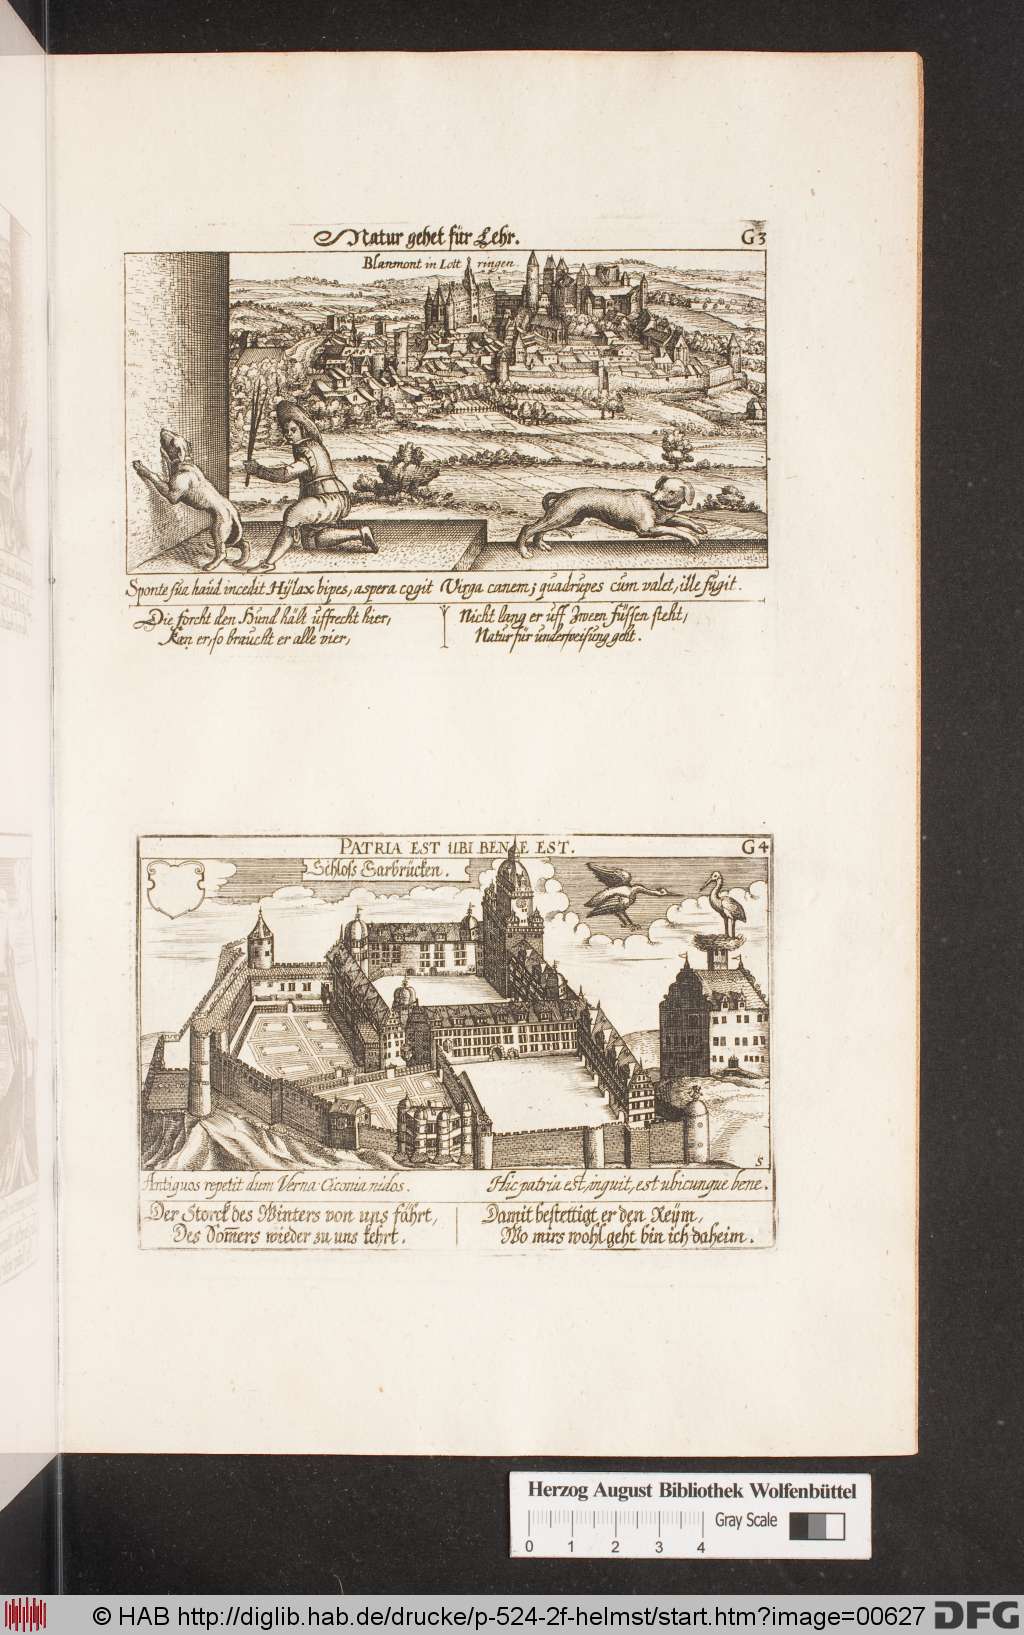 Natur gehet für Lehr.
G3
Blanmont in Lottringen.
Sponte sua haud incedit Hÿlax bipes, aspera cogit Virga canem; quadrupes cum valet, ille fugit.
Die forcht den Hund hält uffrecht hier,
Kan er, so braucht er alle vier,
Nicht lang er uff Zween füssen steht,
Natur für underweisung geht.
PATRIA EST UBI BENE EST.
G4
Schloss Sarbrücken.
S
Antiquos repetit dum Verna Ciconia nidos.
Hic patria est, inquit, est ubicunque bene.
Der Storck des Winters von uns fährt,
Des Som̄ers wieder zu uns kehrt.
Damit bestettigt er den Reÿm,
Wo mirs wohl geht bin ich daheim.
Herzog August Bibliothek Wolfenbüttel
Gray Scale
0 1 2 3 4
© HAB http://diglib.hab.de/drucke/p-524-2f-helmst/start.htm?image=00627
DFG